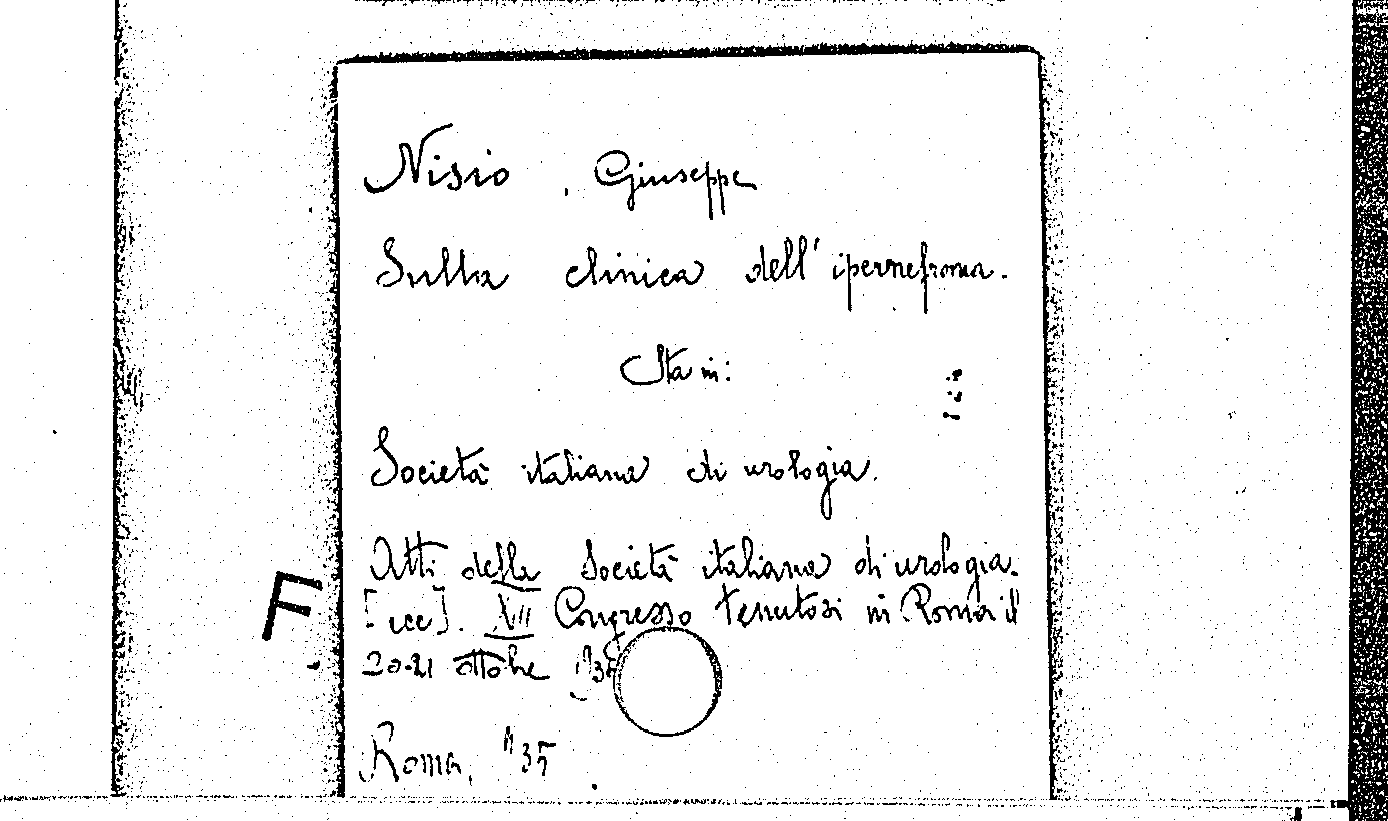 Nisio, Giuseppe
Sulla clinica dell'ipernefroma.
Sta in:
Società italiana di urologia.
Atti della Società italiana di urologia.
[ecc]. XII Congresso tenutosi in Roma il
F
20-21 ottobre
Roma, 1935